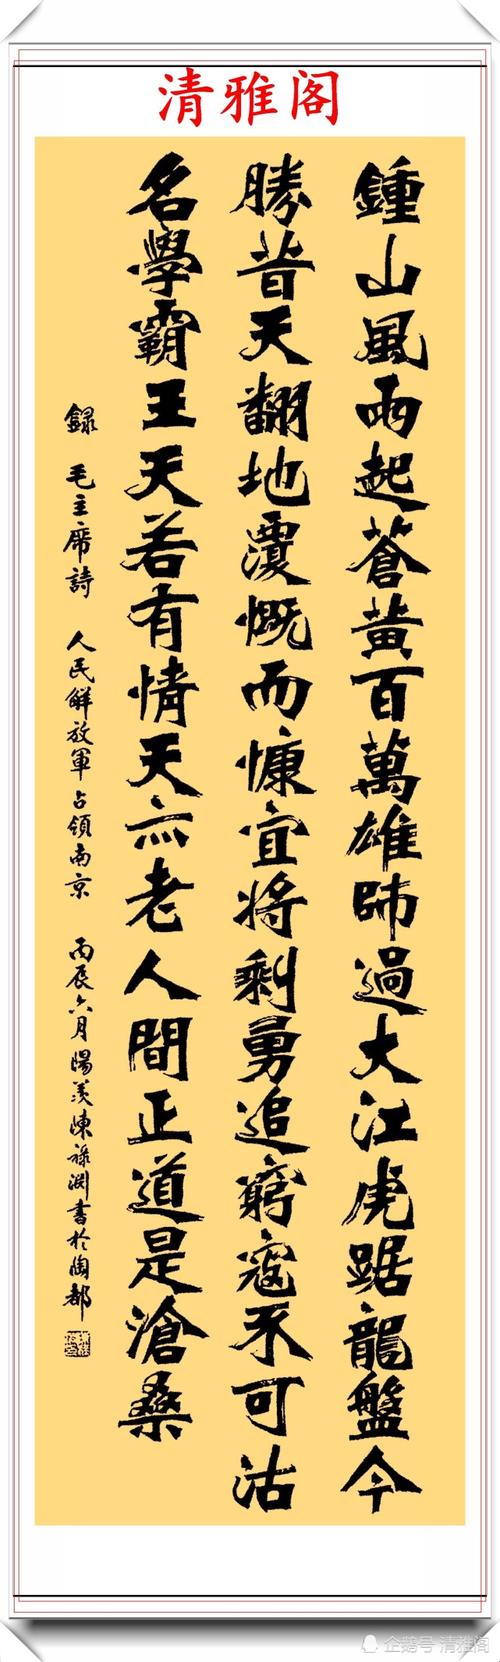 清雅阁
鍾山風雨起蒼黄百萬雄師過大江虎踞龍盤今
勝昔天翻地覆慨而慷宜將剩勇追窮寇不可沽
名學霸王天若有情天亦老人間正道是滄桑
錄 毛主席詩 人民解放軍占領南京 丙辰六月陽羨陳祿淵書於陶都
企鹅号 清雅阁